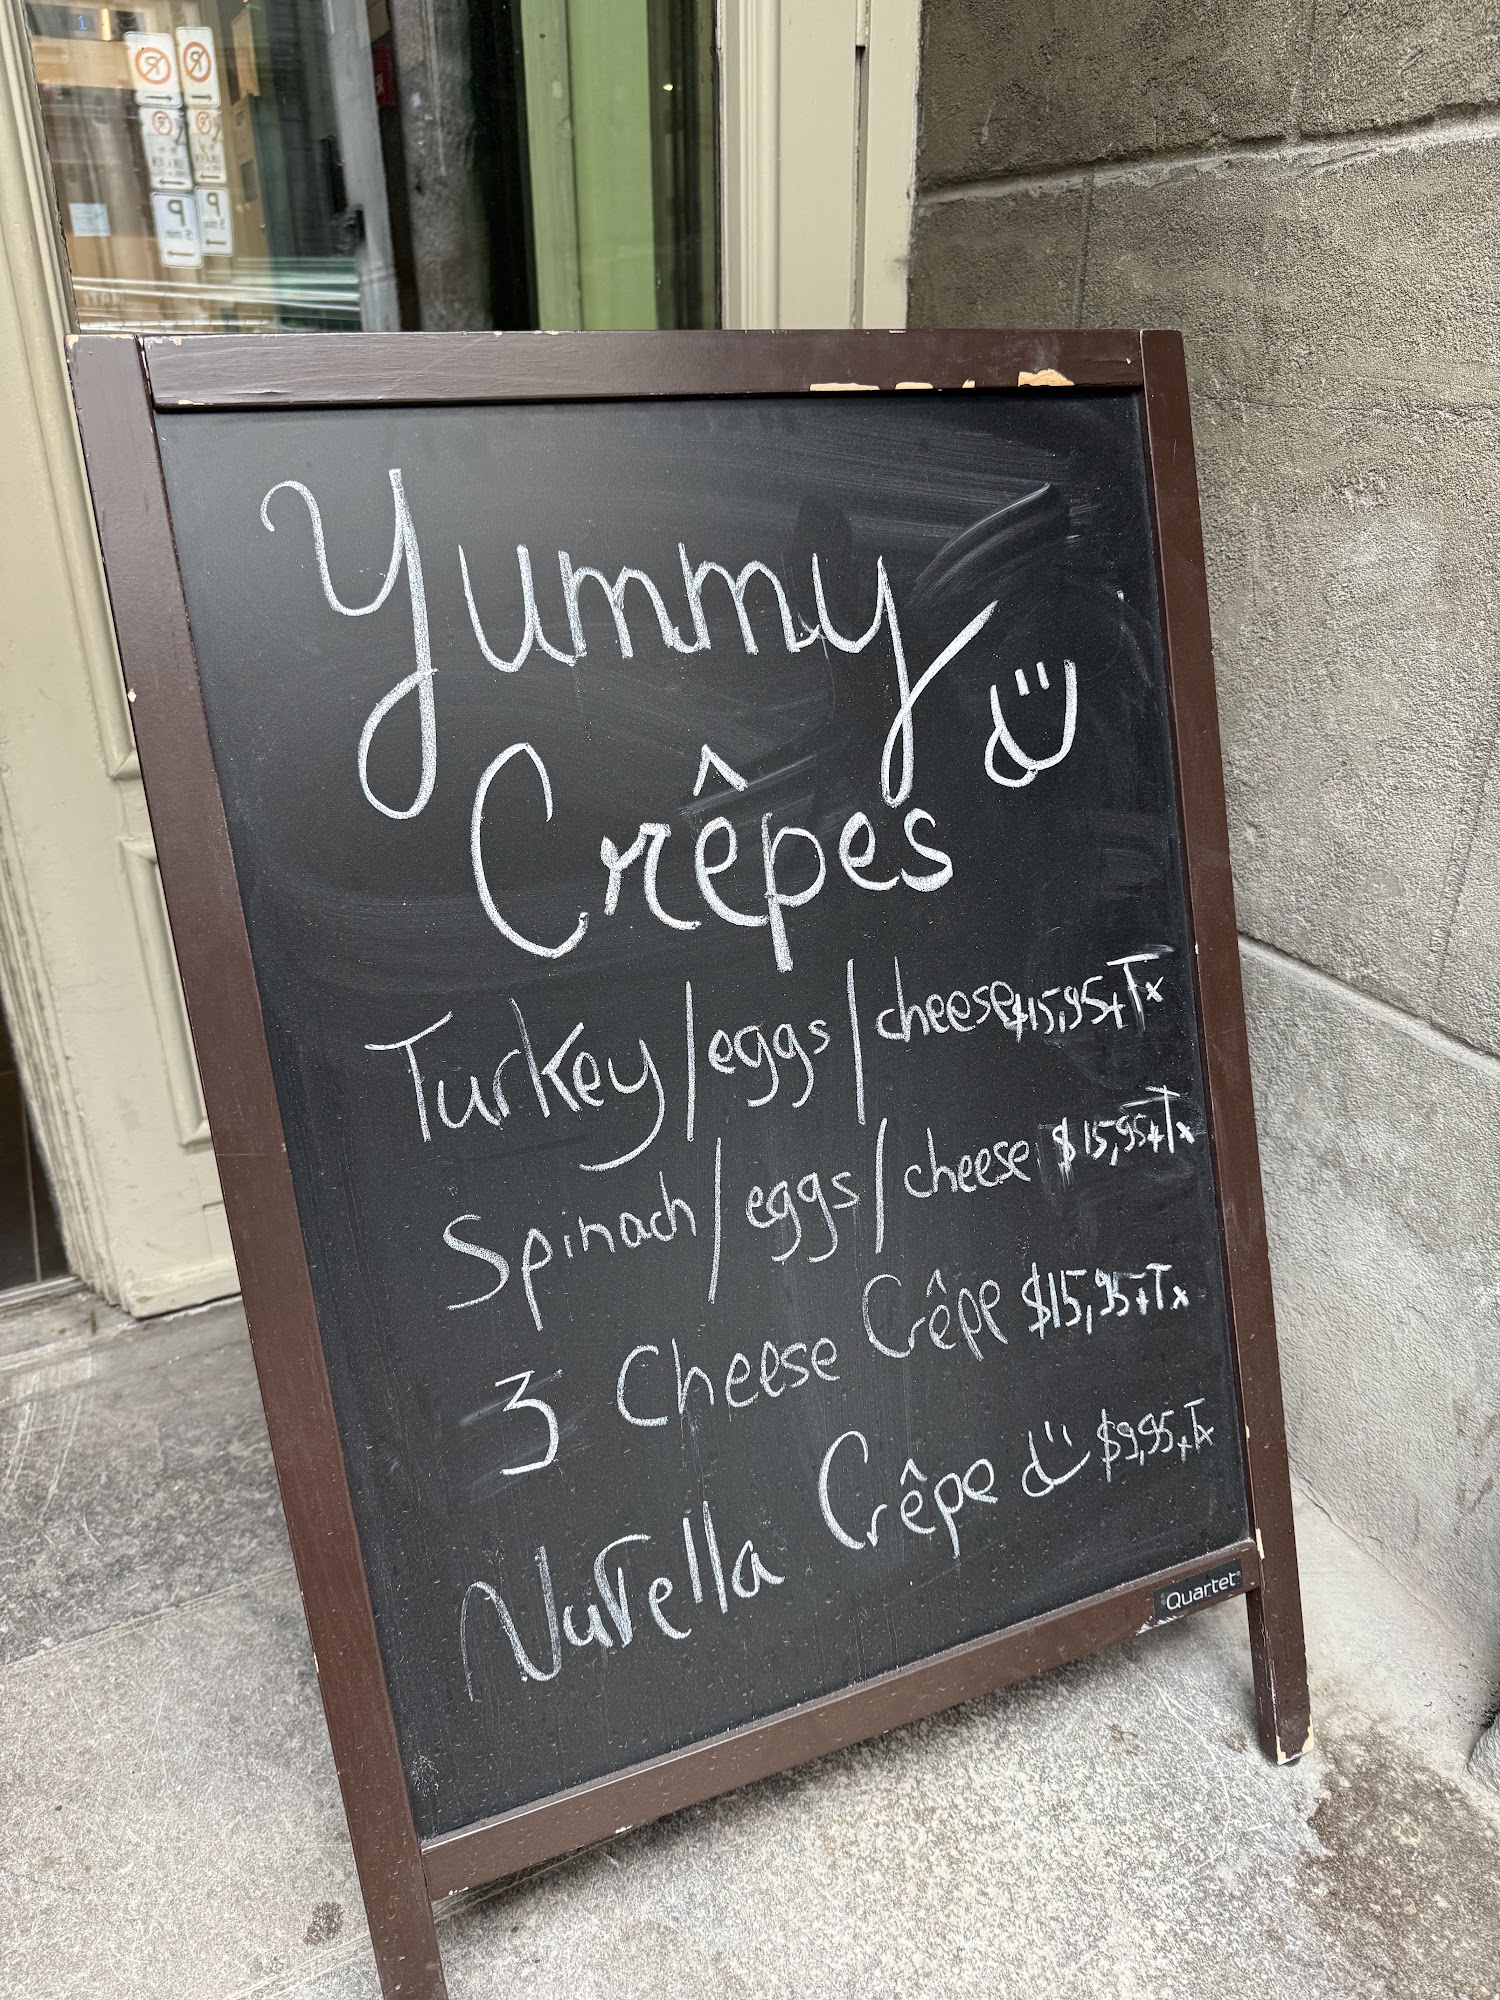 Yummy
Crêpes
Turkey/eggs/cheese $15,95+Tx
Spinach/eggs/cheese $15,95+Tx
3 Cheese Crêpe $15,95+Tx
Nutella Crêpe $9,95+Tx
Quartet